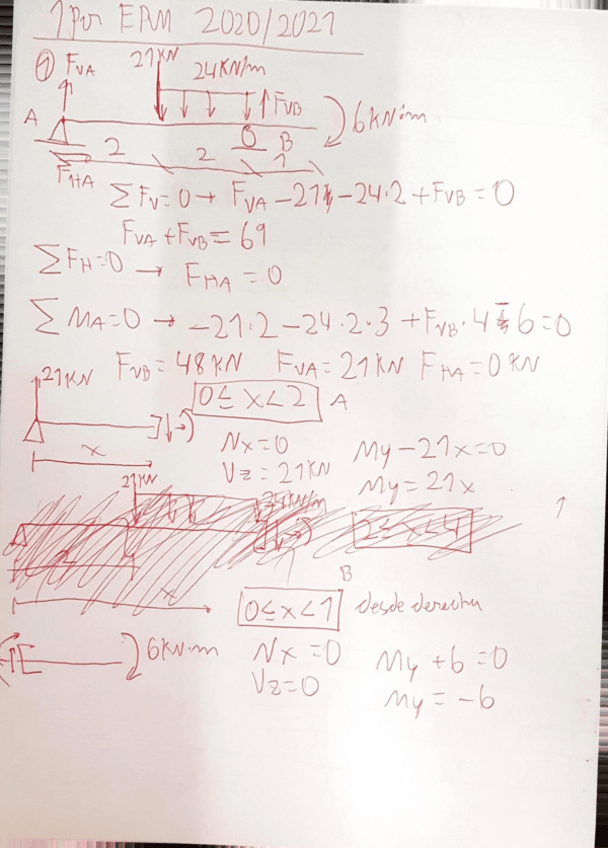 1 Par EPM 2020/2021
① FVA 21KN 24KN/m
FVB 6KN·m
A B
2 2 1
FHA
∑FV=0 → FVA -21 -24·2 + FVB = 0
FVA + FVB = 69
∑FH=0 → FHA = 0
∑MA=0 → -21·2 -24·2·3 + FVB·4 -6=0
FVB = 48KN FVA = 21KN FHA = 0 KN
21KN 0≤x<2 A
x
Nx=0 My-21x=0
Vz = 21KN My = 21x
21KN 24KN/m
2≤x<4
x
B
0≤x<1 desde derecha
6KN·m Nx=0 My+6=0
Vz=0 My = -6